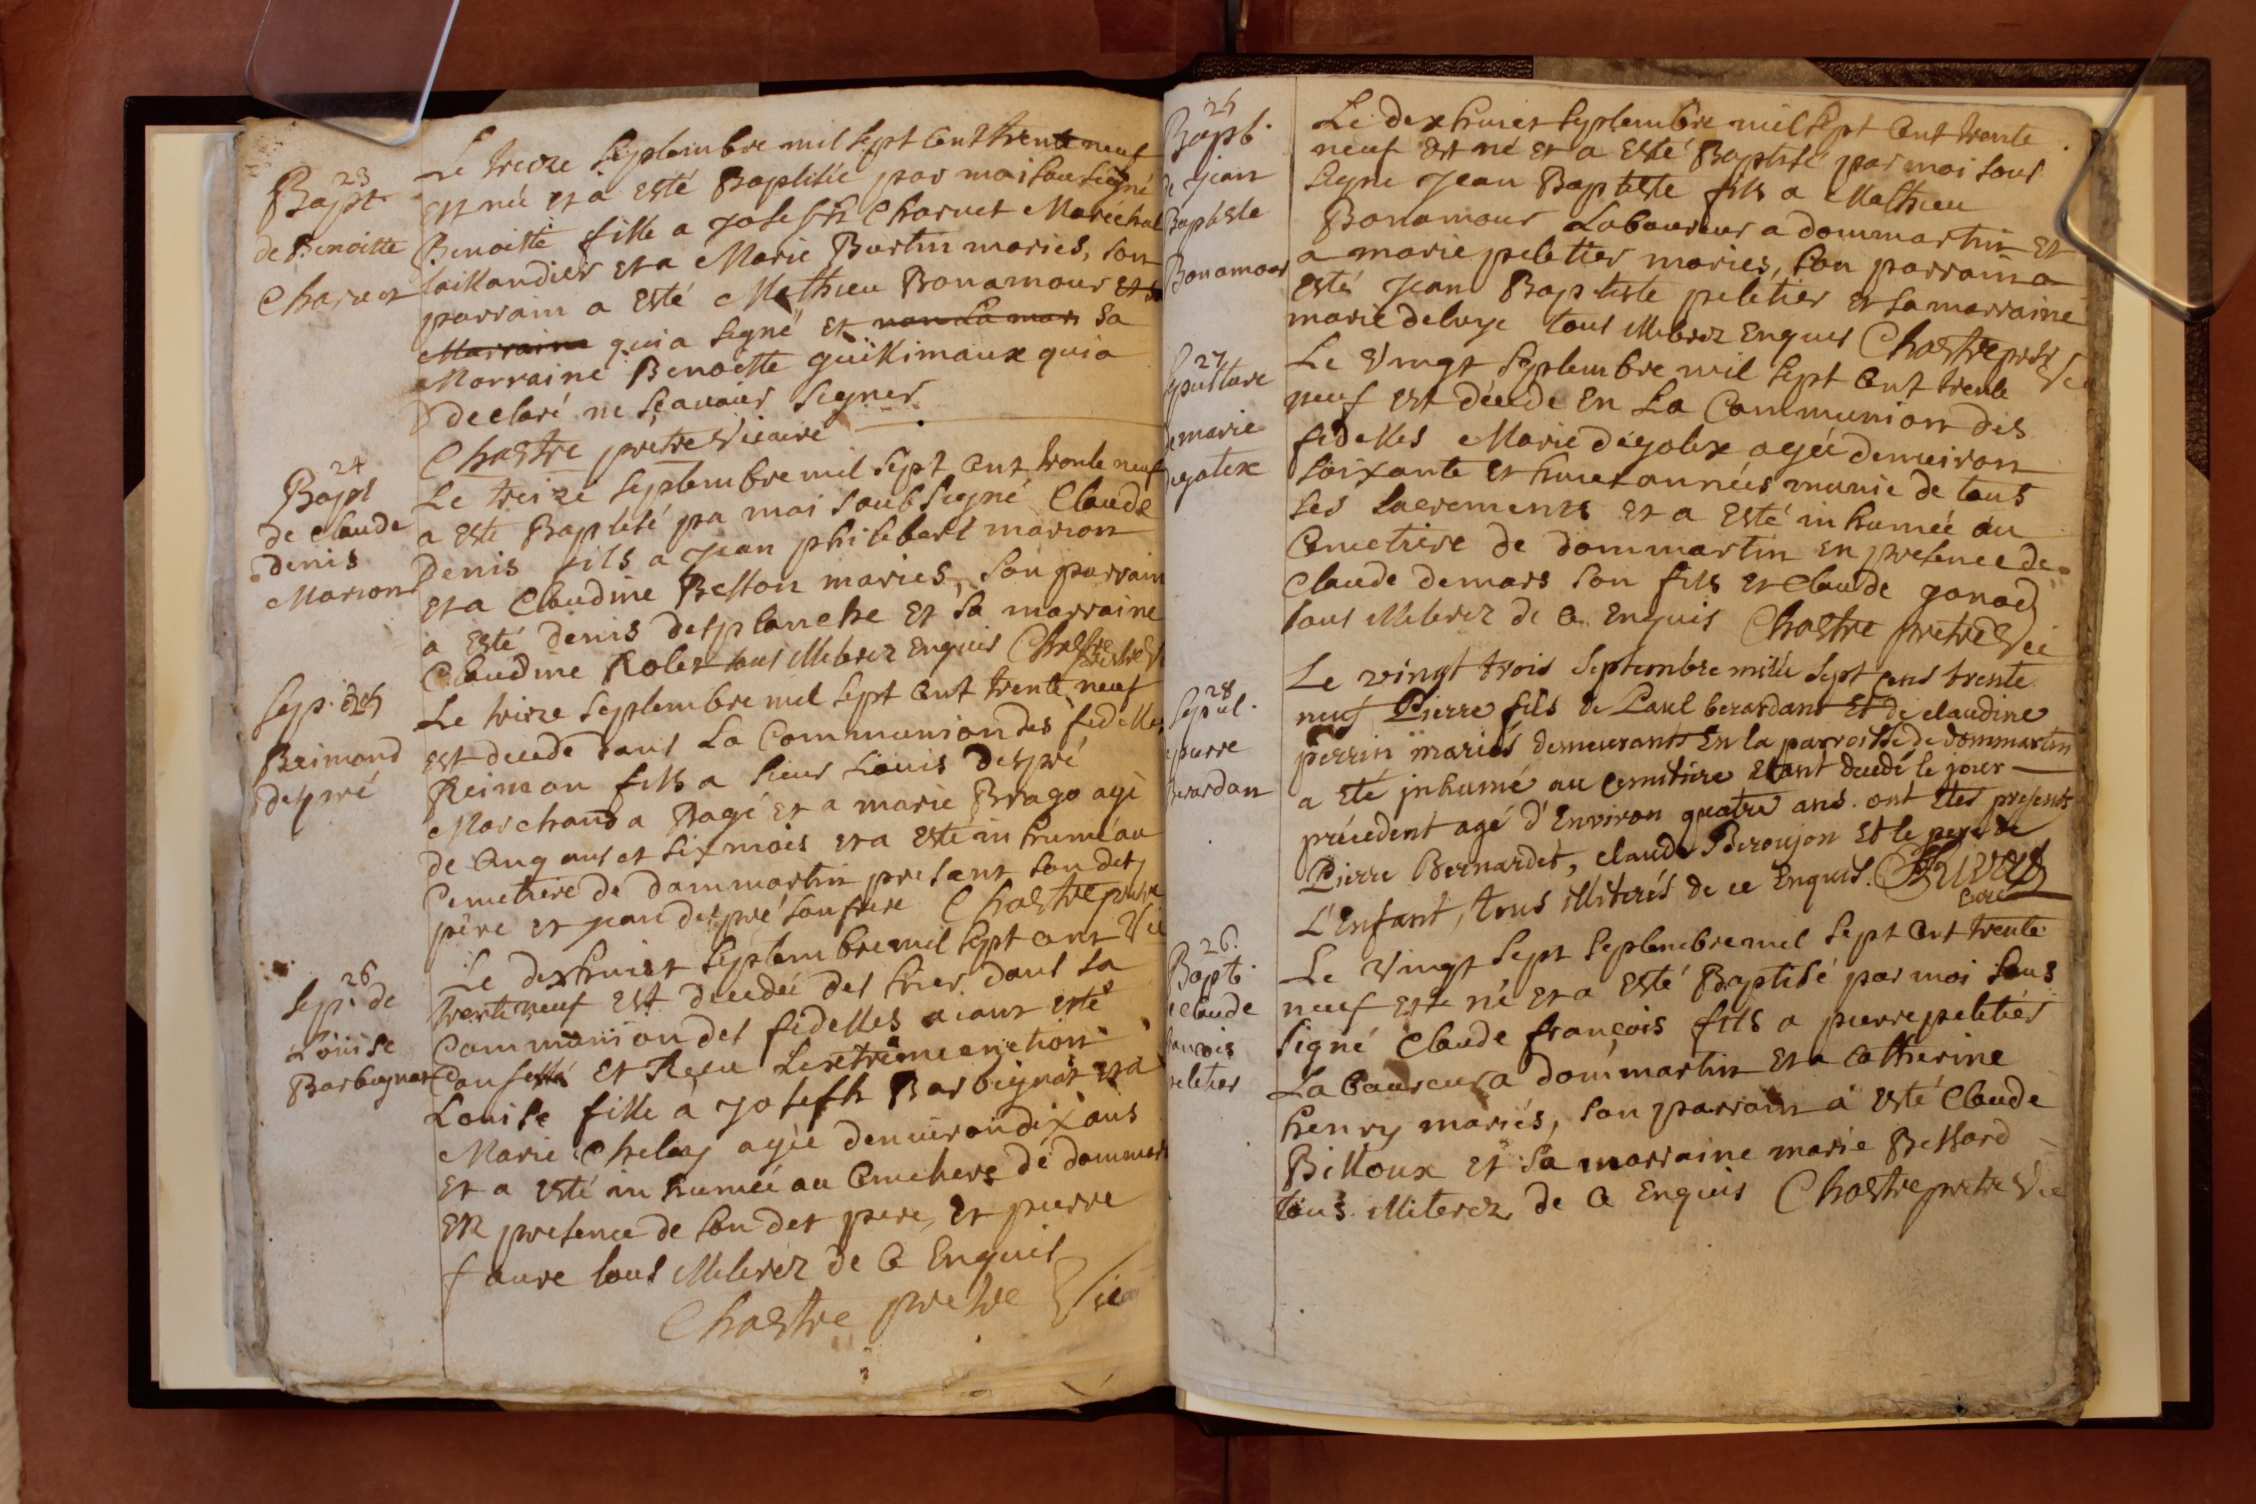 23
Bapt
de Benoitte
Charvet
Le treize Septembre mil sept cent trente neuf
est née et a esté Baptisée par moi sousigné
Benoitte fille a Joseph Charvet Maréchal
taillandier et a Marie Burtin mariés, son
parrain a esté Mathieu Bonamour et sa
Marraine qui a signé et non La mar sa
Marraine Benoette guillimaux qui a
declaré ne sçavoir signer
Chastre pretre Vicaire
24
Bapt
de Claude
denis
Marion
Le treize Septembre mil sept cent trente neuf
a esté Baptisé pa moi soubsigné Claude
Denis fils a Jean philibert marion
et a Claudine Besson mariés, son parrain
a esté denis desplanche et sa marraine
Claudine Rolet tous illiterez enquis Chastre
prestre V
Sep. 25
Reimond
despré
Le treize Septembre mil sept cent trente neuf
est decede dans La Communion des fidelles
Reimon fils a sieur Louis despré
Marchand a Bagé et a marie Brago agé
de cinq ans et six mois et a esté inhumé au
Cemetiere de dommartin present son dit
père et jean despré son frere Chastre pretre
Vic
26
Sep. de
Louise
Barbignot
Le dixhuict Septembre mil sept cent
trente neuf est decedée des hier dans La
Communion des fidelles aiant esté
Confessée et Reçu Lextrême onction
Louise fille a Joseph Barbignot et a
Marie Chelay agée denviron dix ans
et a esté inhumée au Cimetiere de dommar
en presence de son dit pere, et pierre
faure tous illiterez de ce Enquis
Chastre pretre Vic
25
Bapt.
de Jean
Baptiste
Bonamour
Le dixhuict Septembre mil sept cent trente
neuf est né et a esté Baptisé par moi sous
signé Jean Baptiste fils a Mathieu
Bonamour Laboureur a dommartin et
a marie peletier mariés, son parrain a
esté Jean Baptiste peletier et sa marraine
marie deluye tous illiterez Enquis Chastre pretre
Vic
27
Sepulture
de marie
degolex
Le Vingt Septembre mil sept cent trente
neuf est decede En La Communion des
fidelles Marie degolex agée denviron
soixante et huict années munie de tous
ses sacrements et a esté inhumée au
Cemetiere de dommartin en presence de
Claude demars son fils et Claude gonod
tous illiterez de ce enquis Chastre pretre Vic
28
Sepul.
pierre
Berardan
Le vingt trois Septembre mille sept cens trente
neuf Pierre fils de Paul berardant et de claudine
perrin mariés demeurants En la parroisse de dommartin
a eté inhumé au cemitiere etant decedé le jour
précedent agé d'Environ quatre ans. ont etes presents
Pierre Bernardet, claude Beroujon et le pere de
L'Enfant, tous illiterés de ce Enquis.
Curé
26.
Bapt.
de Claude
francois
peletier
Le Vingt sept Septembre mil sept cent trente
neuf este né et a esté Baptisé par moi sous
signé Claude françois fils a pierre peletier
Laboureur a dommartin et a Catherine
henry mariés, son parrain a esté Claude
Billoux et sa marraine marie Bessard
tous illiterez de ce Enquis Chastre pretre Vic